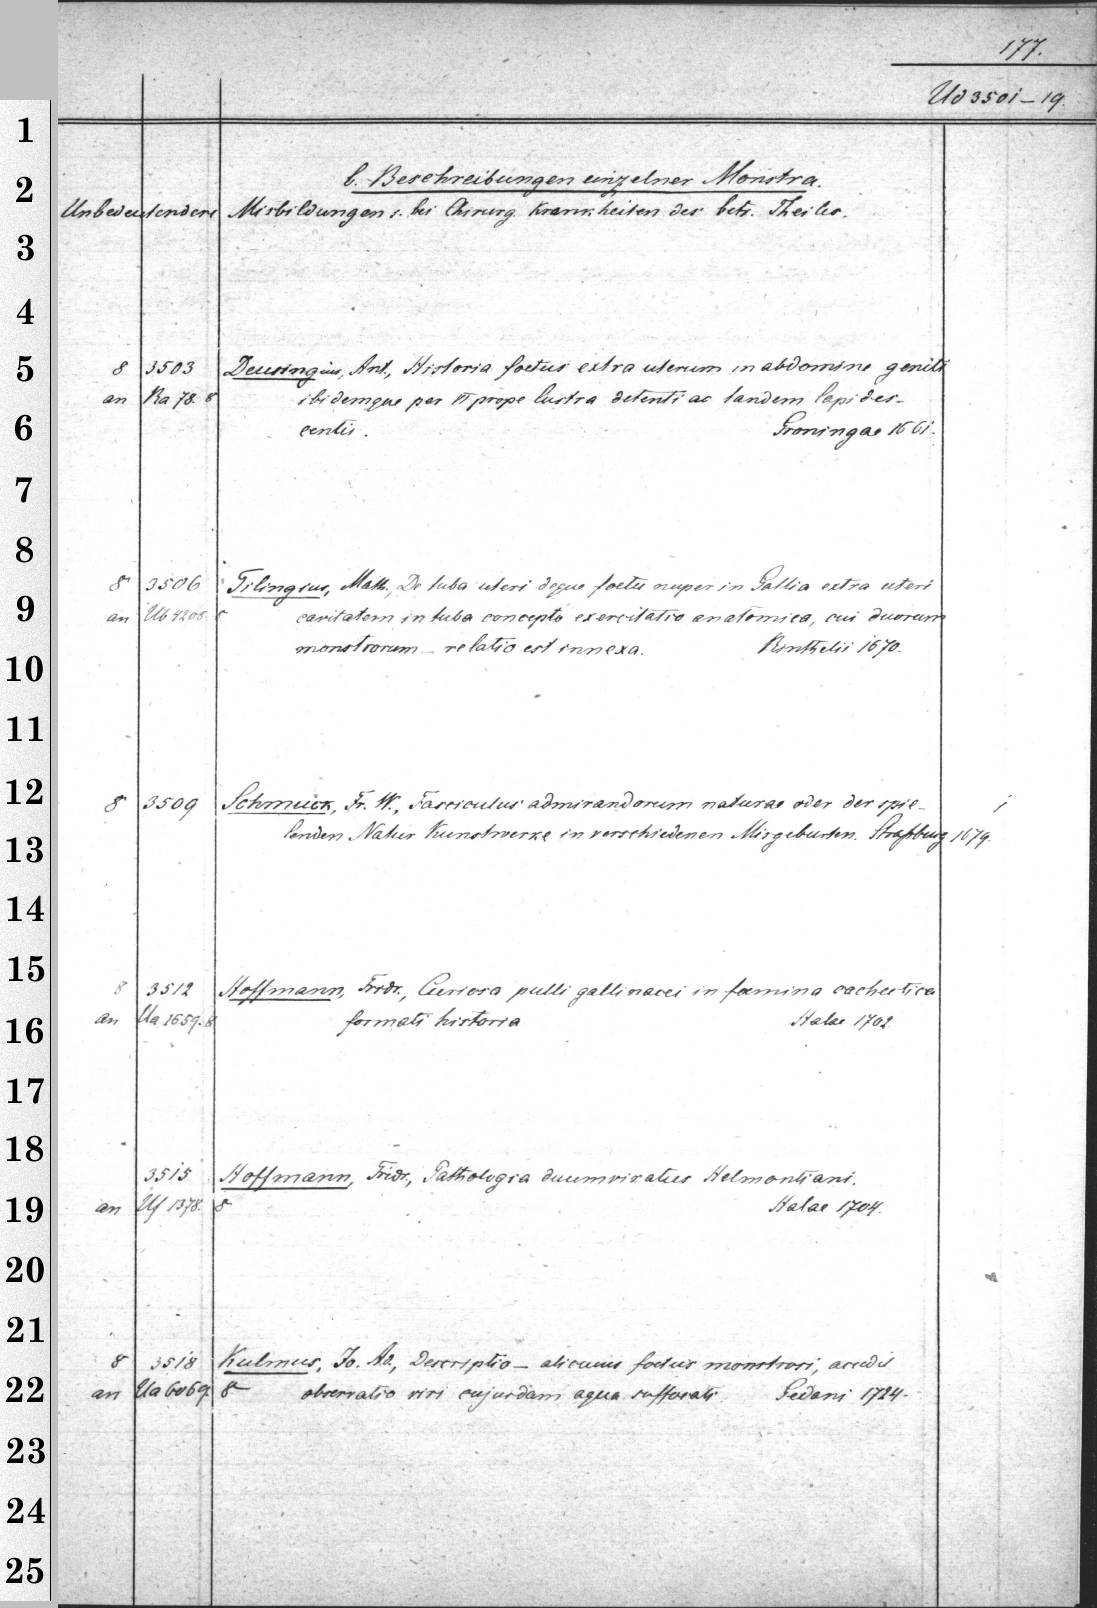 177.
Ud 3501-19.
1
b. Beschreibungen einzelner Monstra.
2
Unbedeutendere Misbildungen s. bei Chirurg. Krankheiten des betr. Theiles.
3
4
5
8 3503 Deusingius, Ant., Historia foetus extra uterum in abdomine geniti
an Ra 78. 8 ibidemque per VI prope lustra detenti ac tandem lapides-
6
centis. Groningae 1661.
7
8
8 3506 Tilingius, Math., De tuba uteri deque foetu nuper in Gallia extra uteri
9
an Ub 4206. 8 cavitatem in tuba concepto exercitatio anatomica, cui duorum
monstrorum - relatio est innexa. Rinthelii 1670.
10
11
12
8 3509 Schmuck, Fr. W., Fasciculus admirandorum naturae oder der spie- 1
lenden Natur Kunstwerke in verschiedenen Misgeburten. Straßburg 1679.
13
14
15
8 3512 Hoffmann, Fridr., Curiosa pulli gallinacei in foemina cachectica
an Ua 1659. 8 formati historia Halae 1702
16
17
18
3515 Hoffmann, Fridr., Pathologia duumviratus Helmontiani.
19
an Uf 1378. 8 Halae 1704.
20
21
8 3518 Kulmus, Jo. Ad., Descriptio - alicuius foetus monstrosi, accedit
22
an Ua 6069. 8 observatio viri cujusdam aqua suffocati Gedani 1724.
23
24
25